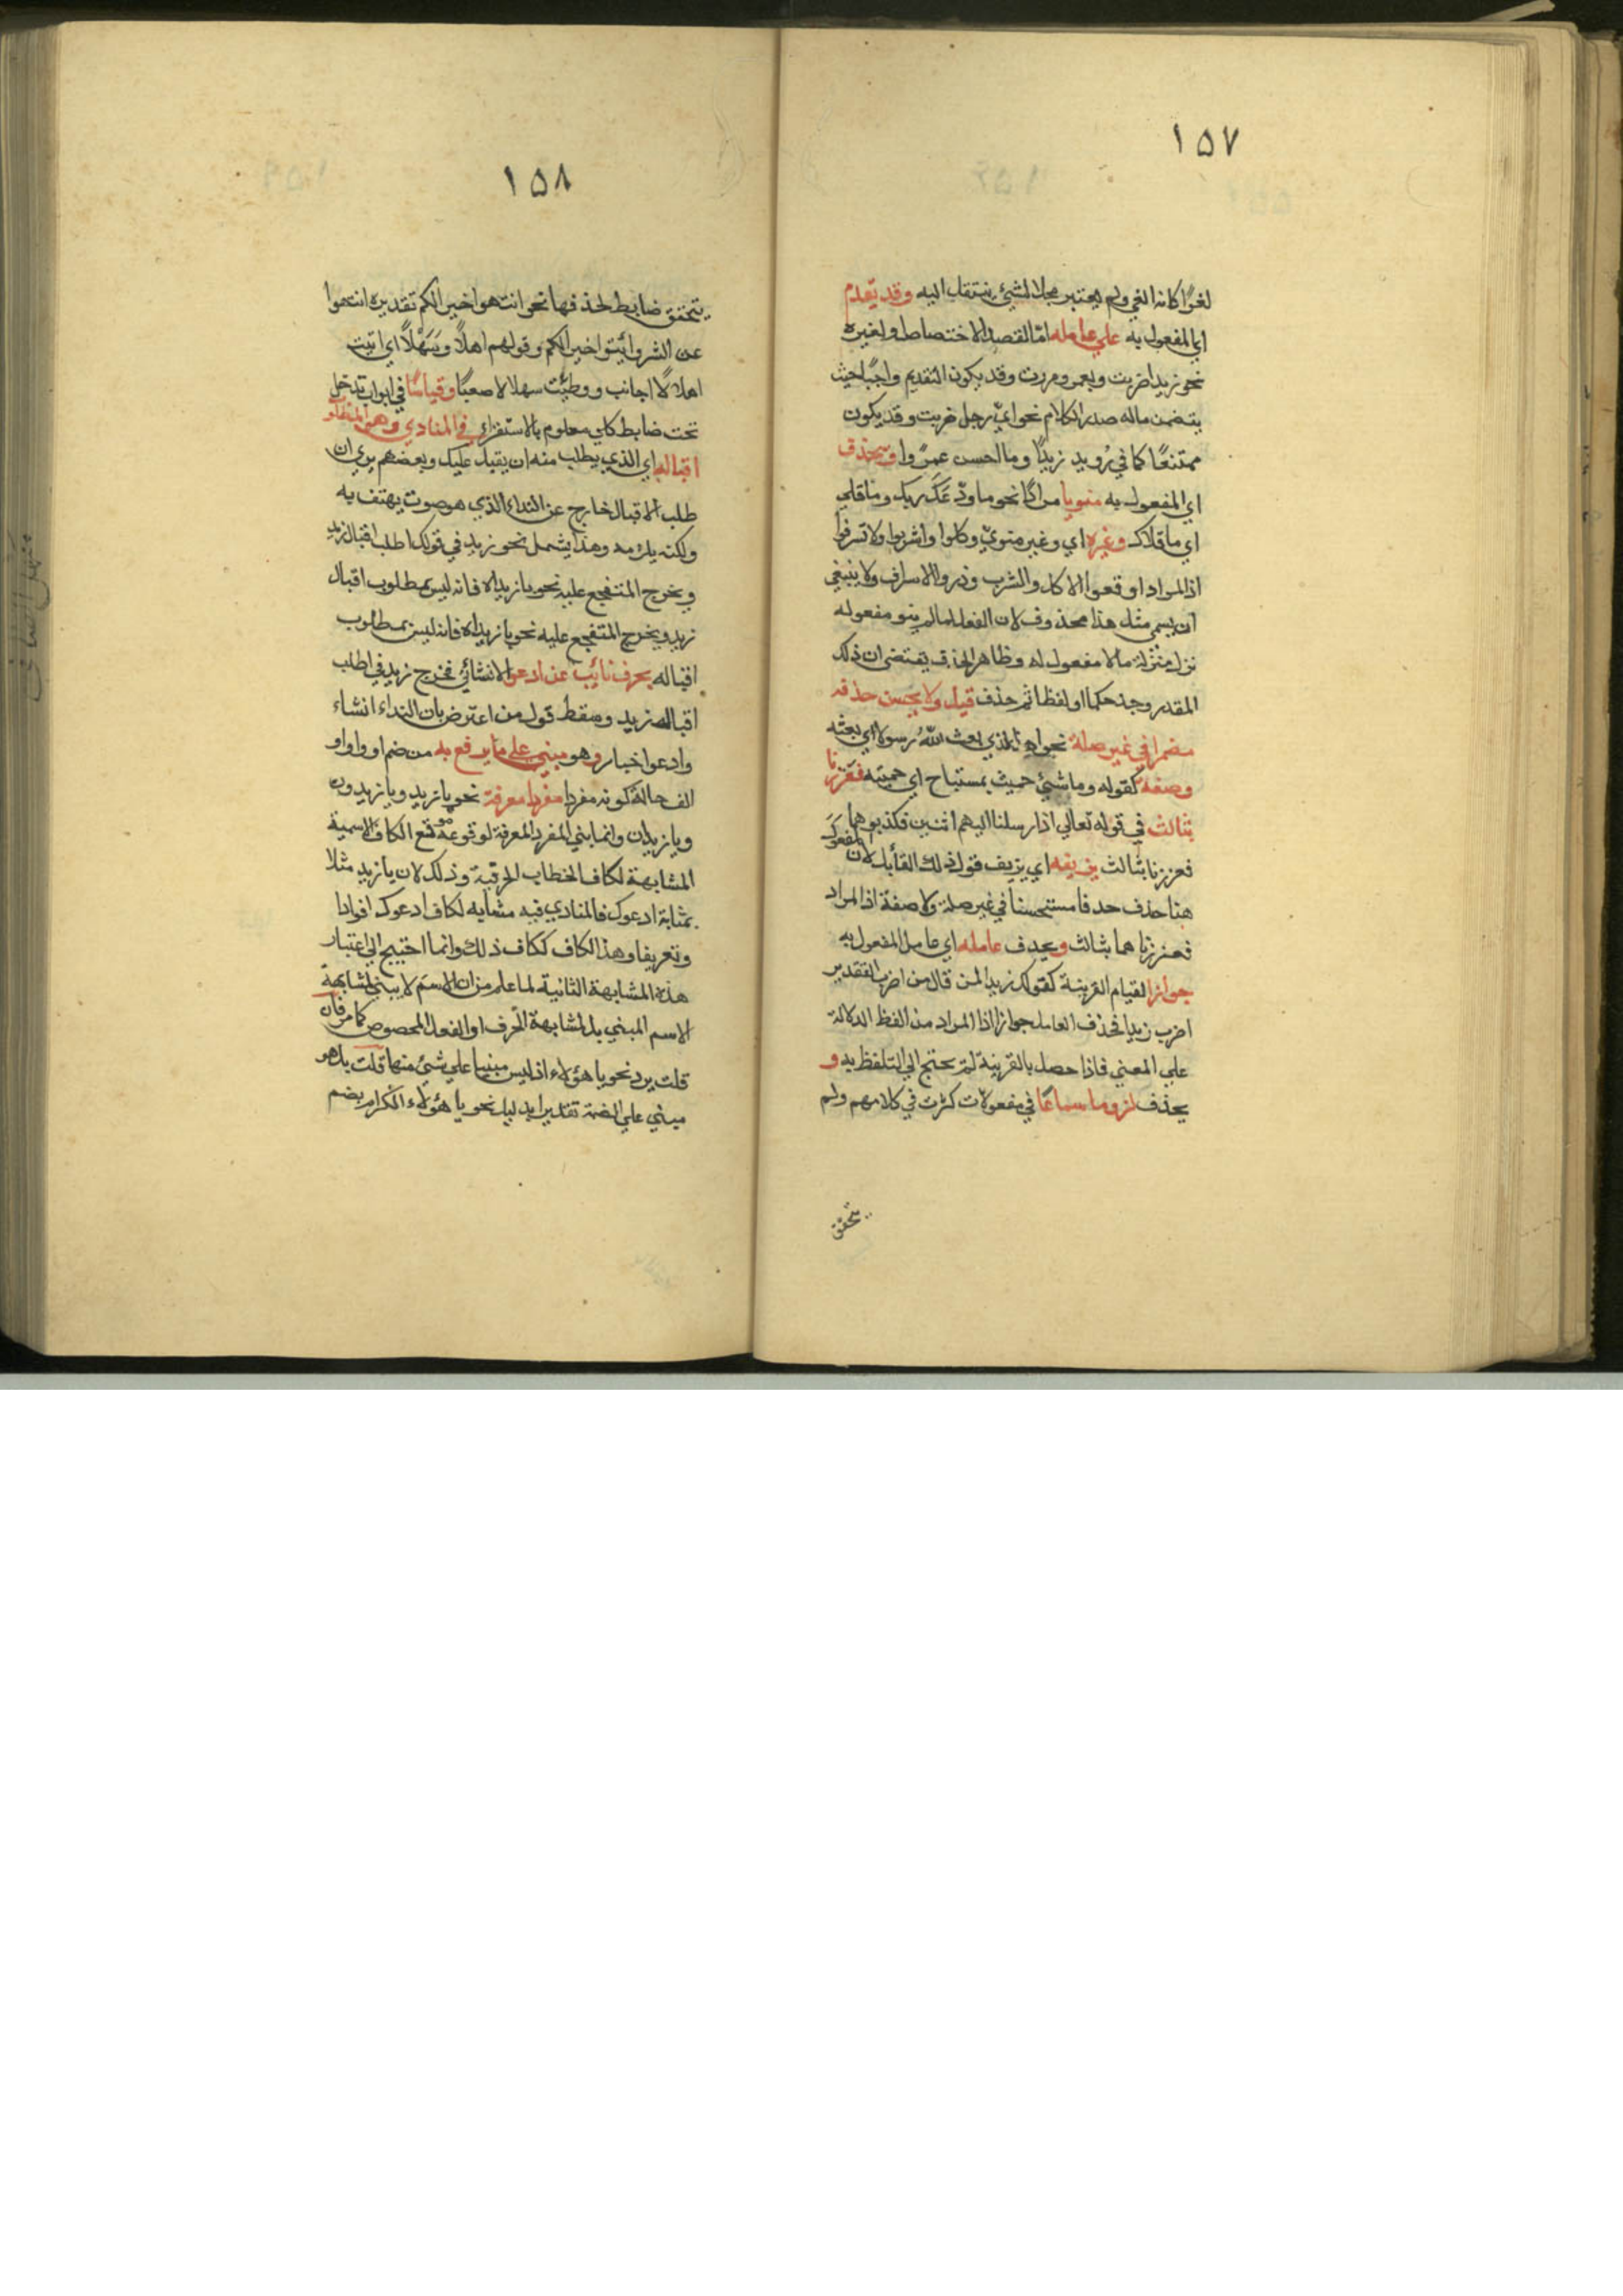 ١٥٧
لغوا كانه الغي ولم يعتبر محلا لشيء ينتقل اليه وقد يتقدم
اي المفعول به علي عامله اما لقصد الاختصاص او لغيره
نحو زيدا ضربت وبعمرو مررت وقد يكون التقديم واجبا حيث
يتضمن ماله صدر الكلام نحو ايّ رجل ضربت وقد يكون
ممتنعًا كما في رُويد زيدًا وما احسن عمروا ويحذف
اي المفعول به منويا مرادًا نحو ما ودّعَكَ ربك وما قلي
اي ما قلاك وغيره اي وغير منويّ وكلوا واشربوا ولا تسرفوا
اذ المراد اوقعوا الاكل والشرب وذروا الاسراف ولا ينبغي
ان يسمي مثل هذا محذوف لان الفعل لما لم ينو مفعوله
نزل منزلة ما لا مفعول له وظاهر الحذف يقتضي ان ذلك
المقدر وجد حكما او لفظا ثم حذف قيل ولا يحسن حذفه
مضمرا في غير صلة نحو اهذا الذي بعث اللّه رسولا اي بعثه
وصفة كقوله وما شيئ حميت بمستباح اي حميته فعززنا
بثالث في قوله تعالي اذ ارسلنا اليهم اثنين فكذبوهما
فعززنا بثالث يزيفه اي يزيف قول ذلك القائل لان المفعول
هنا حذف حذفا مستحسنا في غير صلة ولا صفة اذ المراد
فعززناهما بثالث ويحذف عامله اي عامل المفعول به
جوازا لقيام القرينة كقولك زيدا لمن قال من اضرب التقدير
اضرب زيدا فحذف العامل جوازا اذ المراد من الفظ الدلالة
علي المعني فاذا حصل بالقرينة لم يحتج الي التلفظ به و
يحذف لزوما سماعًا في مفعولات كثرت في كلامهم ولم
يتحقق
١٥٨
يتحقق ضابط لحذفها نحو انتهوا خيرا لكم تقديره انتهوا
عن الشر وائتوا خيرا لكم وقولهم اهلاً وسَهْلاً اي اتيت
اهلا لا اجانب ووطئت سهلا لا صعبًا وقياسًا في ابواب تدخل
تحت ضابط كلي معلوم بالاستقراء في المنادي وهو المطلوب
اقباله اي الذي يطلب منه ان يقبل عليك وبعضهم يري ان
طلب الاقبال خارج عن النداء الذي هو صوت يهتف به
ولكنه يلزمه وهذا يشمل نحو زيد في قولك اطلب اقبال زيد
ويخرج المتفجع عليه نحو يا زيداه فانه ليس بمطلوب اقبال
زيد ويخرج المتفجع عليه نحو يا زيداه فانه ليس بمطلوب
اقباله بحرف نائب عن ادعو الانشائي فخرج زيد في اطلب
اقباله زيد وسقط قول من اعترض بان النداء انشاء
وادعوا خبار وهو مبني علي ما يرفع به من ضم او واو او
الف حالة كونه مفردا مفردا معرفة نحو يا زيد ويا زيدون
ويا زيدان وانما بني المفرد المعرفة لوقوعه موقع الكاف الاسمية
المشابهة لكاف الخطاب الحرفية وذلك لان يا زيد مثلا
بمثابة ادعوك فالمنادي فيه مشابه لكاف ادعوك افرادا
وتعريفا وهذا الكاف ككاف ذلك وانما احتيج الي اعتبار
هذه المشابهة الثانية لما علم من ان الاسم لا يبني لمشابهة
الاسم المبني بل لمشابهة الحرف او الفعل المخصوص كما مر فان
قلت يرد نحو يا هؤلاء اذ ليس مبنيا علي شيئ منها قلت بل هو
مبني علي الضمة تقديرا بدليل نحو يا هؤلاء الكرام بضم